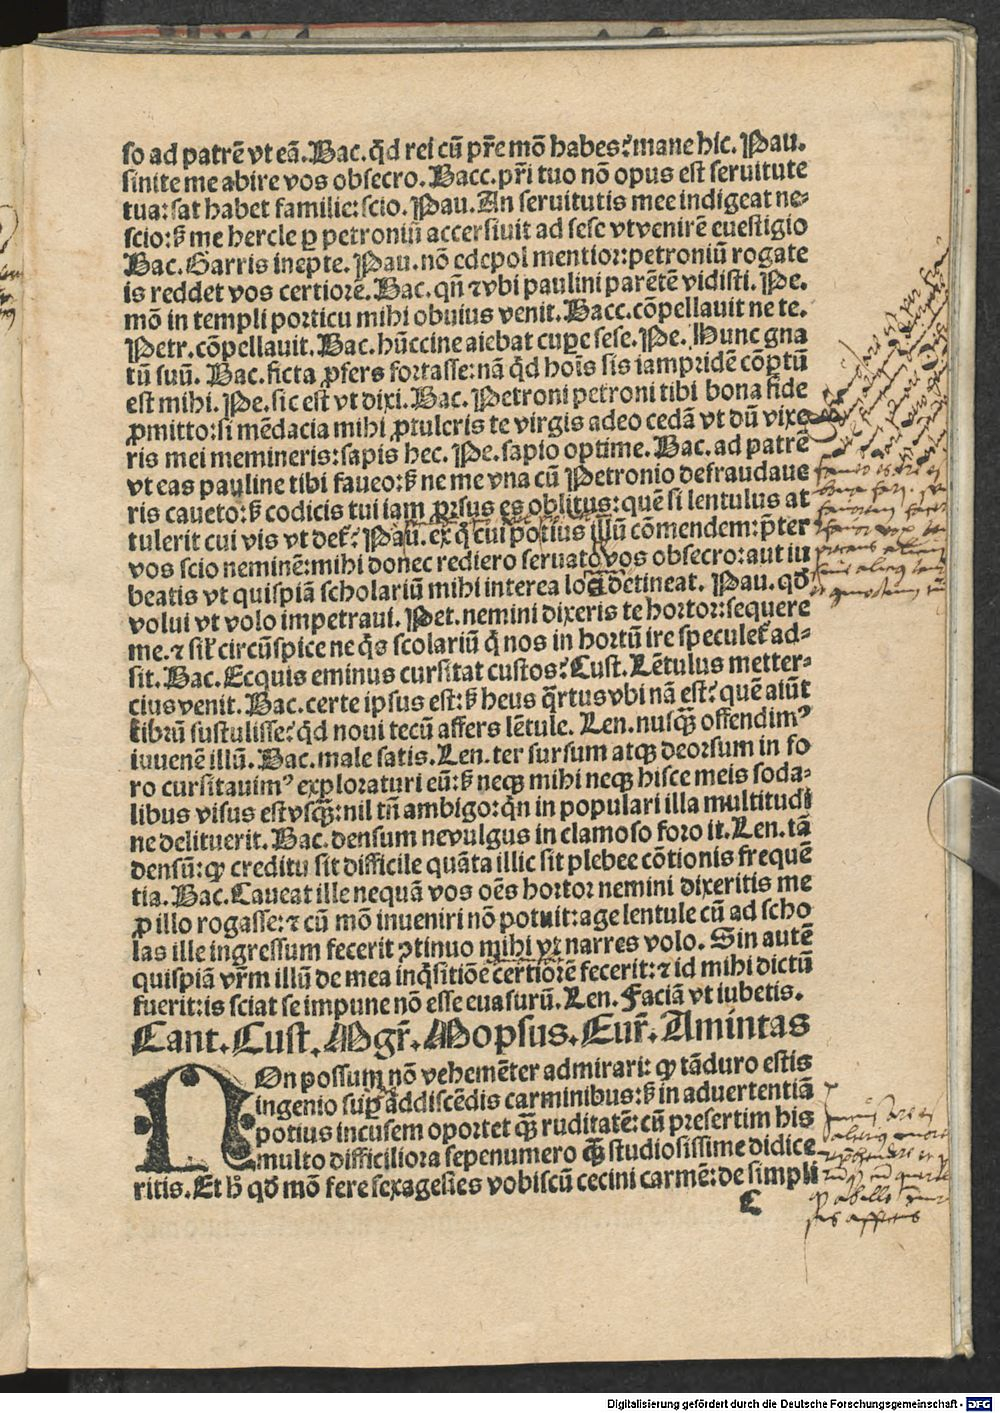 so ad patrē vt eā. Bac. qd̄ rei cū pr̄e mō habes? mane hic. Pau.
sinite me abire vos obsecro. Bacc. pr̄i tuo nō opus est seruitute
tua: sat habet familie: scio. Pau. An seruitutis mee indigeat ne-
scio: sꝫ me hercle ꝑ petroniū accersiuit ad sese vt venirē euestigio
Bac. Garris inepte. Pau. nō edepol mentior: petroniū rogate
is reddet vos certiorē. Bac. qn̄ ⁊ vbi paulini parētē vidisti. Pe.
mō in templi porticu mihi obuius venit. Bacc. cōpellauit ne te.
Petr. cōpellauit. Bac. hūccine aiebat cuꝑe sese. Pe. Hunc gna
tū suū. Bac. ficta ꝓfers fortasse: nā qd̄ hoīs sis iampridē cōꝑtū
est mihi. Pe. sic est vt dixi. Bac. Petroni petroni tibi bona fide
ꝓmitto: si mēdacia mihi ꝓtuleris te virgis adeo cedā vt dū vixe
ris mei memineris: sapis hec. Pe. sapio optime. Bac. ad patrē
vt eas pauline tibi faueo: sꝫ ne me vna cū Petronio defraudaue
ris caueto: sꝫ codicis tui iam ꝓrsus es oblitus: quē si lentulus at
tulerit cui vis vt det̄? Pau. ex q̄ cui potius illū cōmendem: p̄ter
vos scio neminē: mihi donec rediero seruato vos obsecro: aut iu
beatis vt quispiā scholariū mihi interea loci detineat. Pau. qd̄
volui vt volo impetraui. Pet. nemini dixeris te hortor: sequere
me. ⁊ sil̄ circūspice ne q̄s scolariū q̄ nos in hortū ire speculet̄ ad-
sit. Bac. Ecquis eminus cursitat custos? Cust. Lētulus metter-
cius venit. Bac. certe ipsus est: sꝫ heus q̄rtus vbi nā est? quē aiūt
librū sustulisse? qd̄ noui tecū affers lētule. Len. nusqꝫ offendimꝰ
iuuenē illū. Bac. male satis. Len. ter sursum atqꝫ deorsum in fo
ro cursitauimꝰ exploraturi eū: sꝫ neqꝫ mihi neqꝫ hisce meis soda-
libus visus est vsqꝫ: nil tn̄ ambigo: qn̄ in populari illa multitudi
ne delituerit. Bac. densum ne vulgus in clamoso foro it. Len. tā
densū: ꝙ creditu sit difficile quāta illic sit plebee cōtionis frequē
tia. Bac. Caueat ille nequā vos oēs hortor nemini dixeritis me
ꝓ illo rogasse: ⁊ cū mō inueniri nō potuit: age lentule cū ad scho
las ille ingressum fecerit ꝯtinuo mihi vt narres volo. Sin autē
quispiā vr̄m illū de mea inq̄sitiōe certiorē fecerit: ⁊ id mihi dictū
fuerit: is sciat se impune nō esse euasurū. Len. Faciā vt iubetis.
Cant. Cust. Mgr̄. Mopsus. Eur̄. Amintas
NOn possum nō vehemēter admirari: ꝙ tā duro estis
ingenio suꝑ addiscēdis carminibus: sꝫ in aduertentiā
potius incusem oportet qꝫ ruditatē: cū presertim his
multo difficiliora sepenumero qꝫ studiosissime didice
ritis. Et hꝫ qd̄ mō fere sexagesies vobiscū cecini carmē: de simpli
c
Digitalisierung gefördert durch die Deutsche Forschungsgemeinschaft - DFG